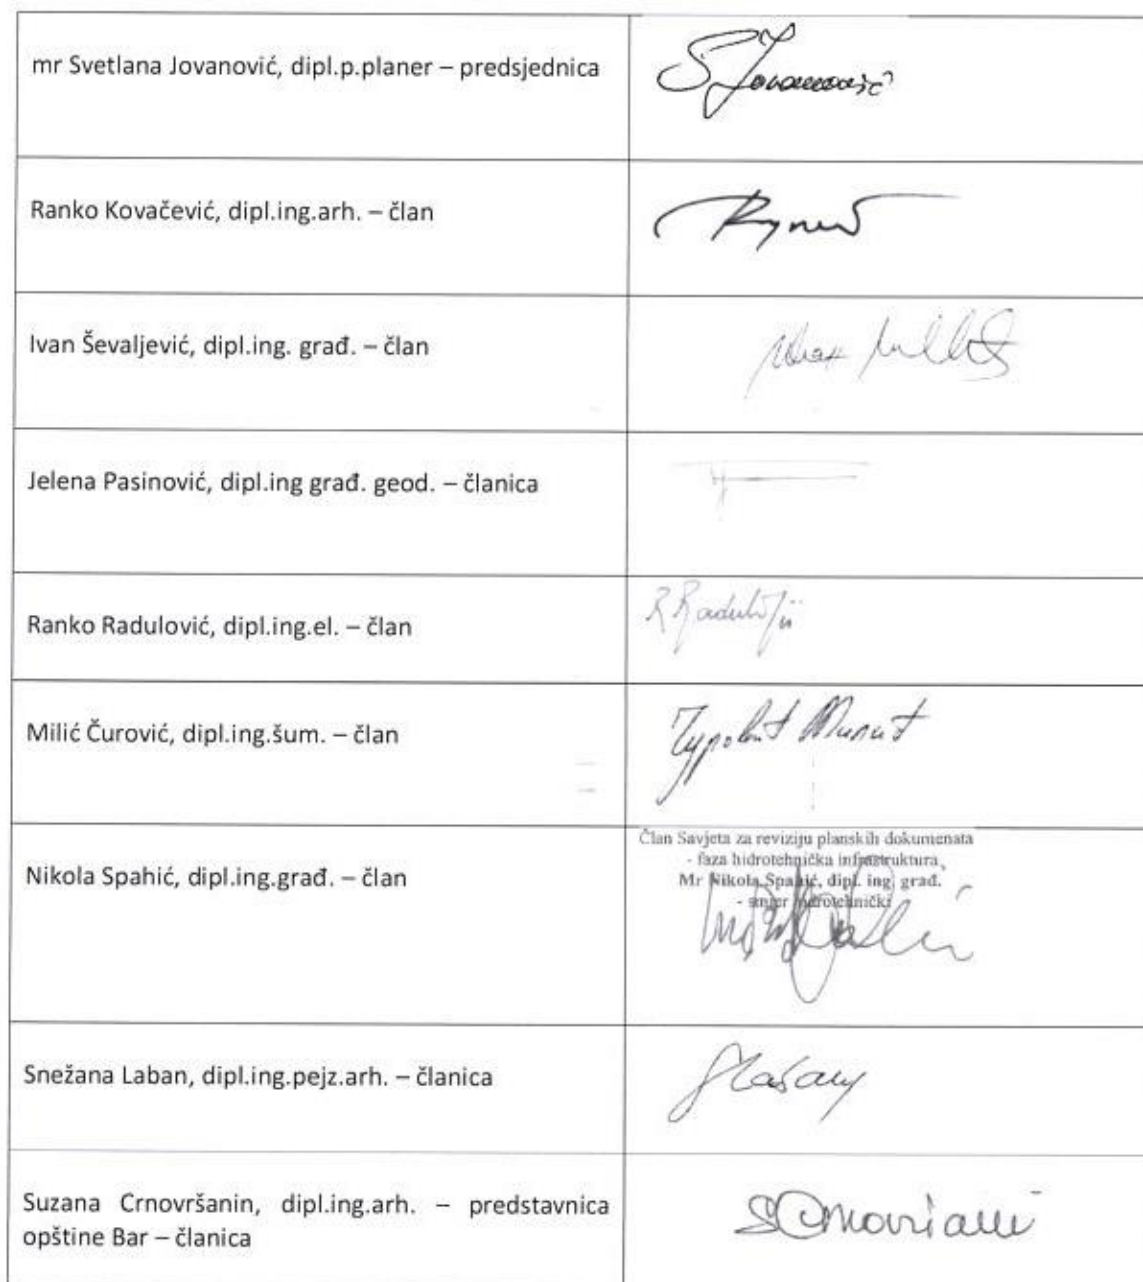 mr Svetlana Jovanović, dipl.p.planer – predsjednica
S Jovanović
Ranko Kovačević, dipl.ing.arh. – član
Ivan Ševaljević, dipl.ing. građ. – član
Jelena Pasinović, dipl.ing građ. geod. – članica
Ranko Radulović, dipl.ing.el. – član
R Radulović
Milić Čurović, dipl.ing.šum. – član
Član Savjeta za reviziju planskih dokumenata
- faza hidrotehnička infrastruktura
Nikola Spahić, dipl.ing.građ. – član
Mr Nikola Spahić, dipl. ing. građ.
- smjer hidrotehnički
Snežana Laban, dipl.ing.pejz.arh. – članica
Suzana Crnovršanin, dipl.ing.arh. – predstavnica
opštine Bar – članica